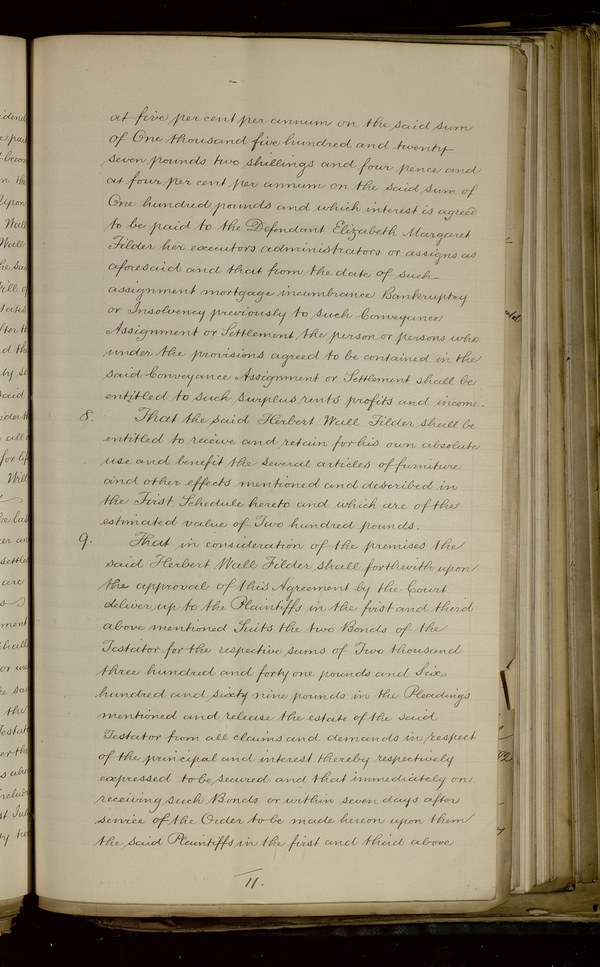 at five per cent per annum on the said sum
of One thousand five hundred and twenty
seven pounds two shillings and four pence and
at four per cent per annum on the said sum of
One hundred pounds and which interest is agreed
to be paid to the Defendant Elizabeth Margaret
Filder her executors administrators or assigns as
aforesaid and that from the date of such
assignment mortgage incumbrance Bankruptcy
or Insolvency previously to such Conveyance
Assignment or Settlement the person or persons who
under the provisions agreed to be contained in the
said Conveyance Assignment or Settlement shall be
entitled to such surplus rents profits and income.
8. That the said Herbert Wall Filder shall be
entitled to receive and retain for his own absolute
use and benefit the several articles of furniture
and other effects mentioned and described in
the First Schedule hereto and which are of the
estimated value of Two hundred pounds.
9. That in consideration of the premises the
said Herbert Wall Filder shall forthwith upon
the approval of this Agreement by the Court
deliver up to the Plaintiffs in the first and third
above mentioned Suits the two Bonds of the
Testator for the respective sums of Two thousand
three hundred and forty one pounds and Six
hundred and sixty nine pounds in the Pleadings
mentioned and release the estate of the said
Testator from all claims and demands in respect
of the principal and interest thereby respectively
expressed to be secured and that immediately on
receiving such Bonds or within seven days after
service of the Order to be made hereon upon them
the said Plaintiffs in the first and third above
11.